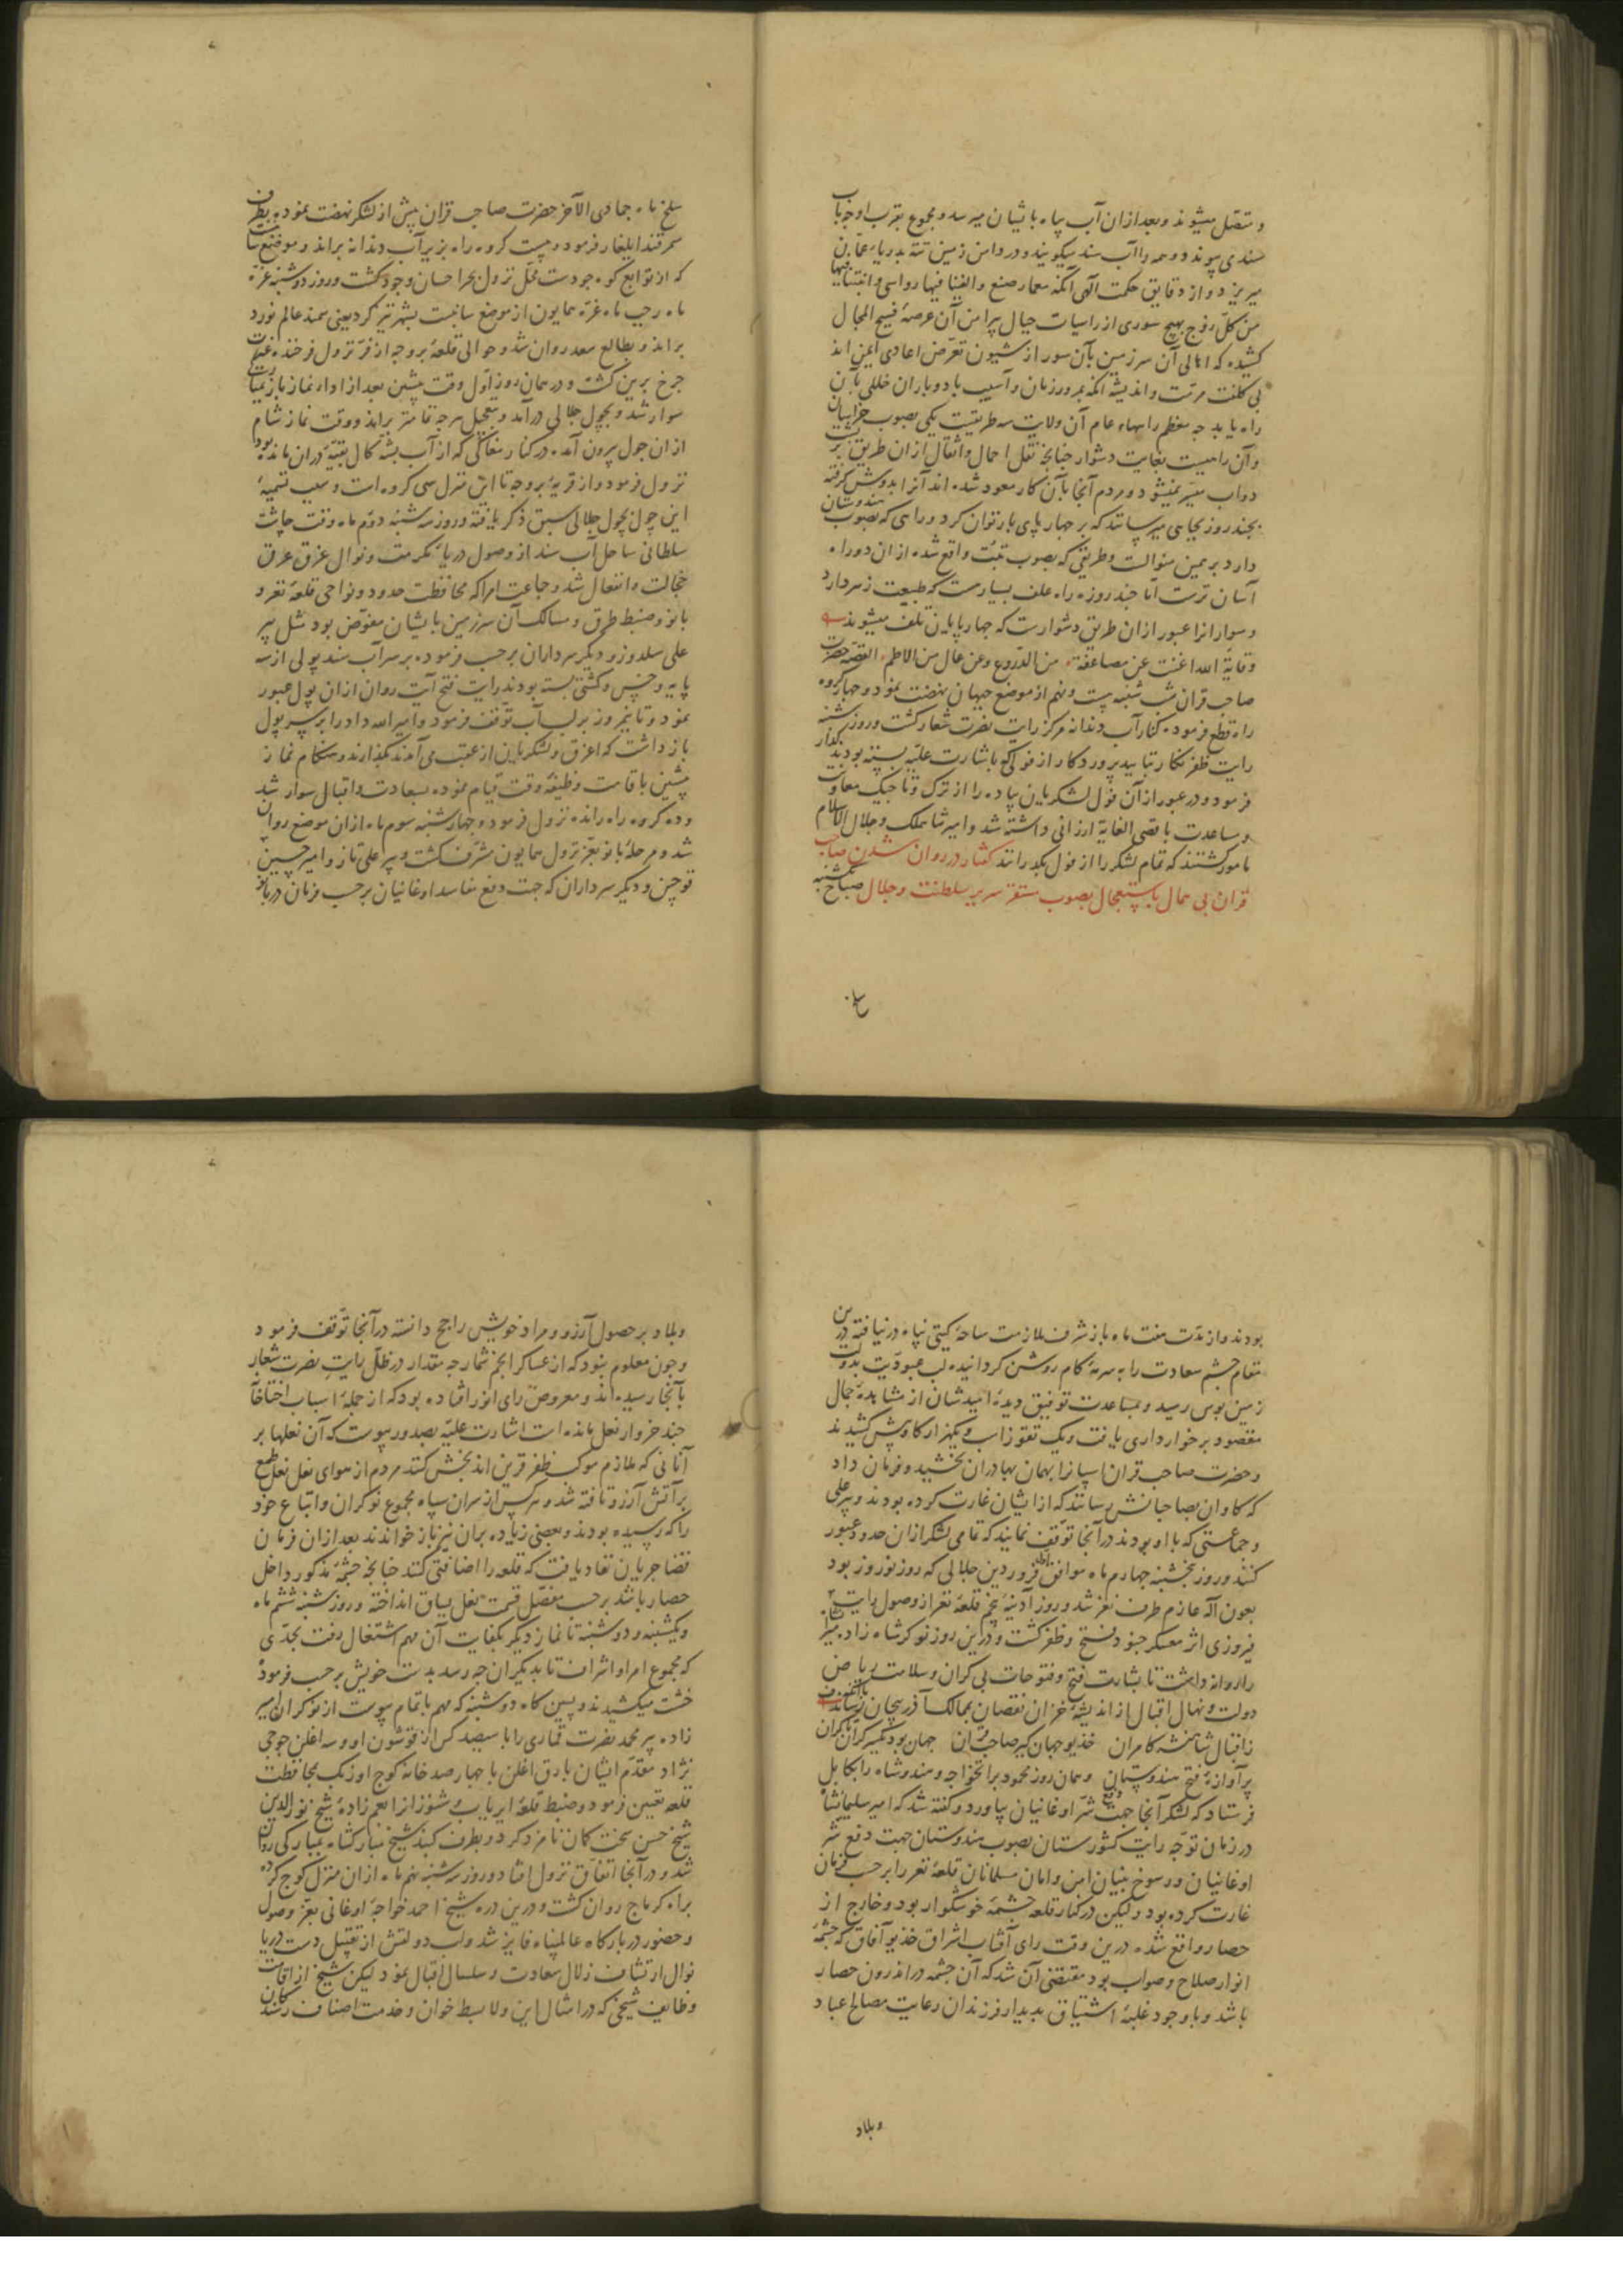 و متصل میشوند و بعد ازان آب پیاه بایشان میرسد و مجموع بقرب اوجه بآب
سندی پیوندد و همه را آب سند میگویند و در دامن زمین تته بدریا عمان
میریزد و از دقایق حکمت آلهی آنکه معمار صنع والقینا فیها رواسی وانبتنا فیها
من کل زوج بهیج سوری از راسیات جبال پیرامن آن عرصهٔ فسیح المجال
کشیده که اهالی آن سرزمین بآن سور از شیون تعرض اعادی ایمن اند
بی کلفت مرمت و اندیشه آنکه بمرور زمان و آسیب باد و باران خللی بآن
راه یابد چه معظم راههاء عام آن ولایت سه طریقست یکی بصوب خراسان
و آن راهیست بغایت دشوار چنانچه نقل احمال و اثقال ازان طریق بر پشت
دواب میسر نمیشود و مردم آنجا بآن کار معود شده اند آنرا بدوش گرفته
بچند روز بجایی میرسانند که بر چهار پای بار توان کرد و راهی که بصوب هندوستان
دارد بر همین منوالست و طریقی که بصوب تبت واقع شده ازان دو راه
آسان ترست اما چند روزه راه علف بسیارست که طبیعت زهر دارد
و سوارانرا عبور ازان طریق دشوارست که چهارپایان تلف میشوند
وقایة الله اغنت عن مضاعفة من الدروع وعن عال من الاطم القصه حضرت
صاحب قران شب شنبه بیست و نهم از موضع جبهان نهضت نمود و چهار کروه
راه قطع فرموده کنار آب دندانه مرکز رایت نصرت شعار گشت و روز شنبه
رایت ظفر نگار بتایید پروردکار از قولی که باشارت علیه بسته بودند گذار
فرمود و در عبور از آن قول لشکریان پیاده را از ترک و تاجیک معاونت
و مساعدت باقصی الغایة ارزانی داشته شد و امیر شاهملک و جلال الاسلام
مامور گشتند که تمام لشکر را از قول بگذرانند گفتار در روان شدن صاحب
قران بی همال باستعجال بصوب مستقر سریر سلطنت و جلال صباح یکشنبه
سلخ
سلخ ماه جمادی الآخر حضرت صاحب قران پیش از لشکر نهضت نموده بطرف
سمرقند ایلغار فرمود و بیست کروه راه بزیر آب دندانه براند و موضع سانبست
که از توابع کوه جودست محل نزول بحر احسان وجود گشت و روز دوشنبه غره
ماه رجب ماه غره همایون از موضع سانبست بشهر تیز گرد یعنی سمند عالم نورد
براند و بطالع سعد روان شد و حوالی قلعهٔ بروجه از فر نزول فرخنده غیرت
چرخ برین گشت و در همان روز اول وقت پیشین بعد از اداء نماز باز بمبارکی
سوار شد و بچول جلالی درآمد و بتعجیل هرچه تمامتر براند و وقت نماز شام
ازان چول بیرون آمده در کنار مغاکی که از آب بشه کال بقیهٔ دران مانده بود
نزول فرمود و از قریهٔ بروجه تا این منزل سی کروه است و سبب تسمیهٔ
این چول بچول جلالی سبق ذکر یافته و روز سه شنبه دوم ماه وقت چاشت
سلطانی ساحل آب سند از وصول دریاء مکرمت و نوال غرق عرق
خجالت و انفعال شد و جماعت امرا که محافظت حدود و نواحی قلعهٔ نغز و
بانو و ضبط طرق و مسالک آن سرزمین بایشان مفوض بود مثل پیر
علی سلدوز و دیگر سرداران برحسب فرموده بر سر آب سند پولی از سه
پایه و خس و کشتی بسته بودند رایت فتح آیت روان ازان پول عبور
نمود و تا نیمروز بر لب آب توقف فرمود و امیر الله داد را بر سر پول
باز داشت که اغرق و لشکر باین از عقب می آمدند بگذارند و هنگام نماز
پیشین باقامت وظیفهٔ وقت قیام نموده بسعادت و اقبال سوار شد
و ده کروه راه رانده نزول فرمود و چهارشنبه سوم ماه ازان موضع روان
شد و مرحلهٔ بانو بعز نزول همایون مشرف گشت و پیر علی تاز و امیر حسین
قوچین و دیگر سرداران که جهت دفع مفاسد اوغانیان برحسب فرمان در بانو
بودند و از مدت هفت ماه باز شرف ملازمت ساحهٔ گیتی پناه درنیافته درین
مقام چشم سعادت را بسرمهٔ کام روشن گردانیده لب عبودیت بدولت
زمین بوس رسید و بمساعدت توفیق دیدهٔ امیدشان از مشاهدهٔ جمال
مقصود برخورداری یافت و یک تقوز اسب و یکهزار گاو پیش کشیدند
و حضرت صاحب قران اسپانرا بهمان بهادران بخشید و فرمان داد
که گاوان بصاحبانش رسانند که از ایشان غارت کرده بودند و پیر علی
و جماعتی که با او بودند در آنجا توقف نمایند که تمامی لشکر ازان حدود عبور
کنند و روز پنجشنبه چهارم ماه موافق اول فروردین جلالی که روز نوروز بود
بعون اله عازم طرف نغز شد و روز آدینهٔ پنجم قلعهٔ نغز از وصول رایت
فیروزی اثر معسکر جنود فتح و ظفر گشت و درین روز نوکر شاه زاده میرانشاه
را روانه داشت تا بشارت فتح و فتوحات بی کران و سلامت ریاض
دولت و نهال اقبال از اندیشهٔ خزان نقصان بممالک آذربیجان رساند
ز اقبال شاهنشه کامران خدیو جهان گیر صاحب قران جهان بود یکسر کران تا کران
پر آوازهٔ فتح هندوستان و همان روز محمود براتخواجه و هندوشاه را بکابل
فرستاد که لشکر آنجا جهت دفع شر اوغانیان بیاورد و گفته شد که امیر سلیمانشاه
در زمان توجه رایت کشورستان بصوب هندوستان جهت دفع شر
اوغانیان و رسوخ بنیان امن و امان مسلمانان قلعهٔ نغز را برحسب فرمان
عمارت کرده بود و لیکن در کنار قلعه چشمهٔ خوشگوار بود و خارج از
حصار واقع شده درین وقت رای آفتاب اشراق خدیو آفاق که چشمهٔ
انوار صلاح و صواب بود مقتضی آن شد که آن چشمه در اندرون حصار
باشد و باوجود غلبهٔ اشتیاق بدیدار فرزندان رعایت مصالح عباد
وبلاد
وبلاد بر حصول آرزو و مراد خویش راجح دانسته در آنجا توقف فرمود
و چون معلوم نبود که از عساکر انجم شمار چه مقدار در ظل رایت نصرت شعار
بآنجا رسیده اند و معروض رای انور افتاده بود که از جملهٔ اسباب اختاخانه
چند خروار نعل مانده است اشارت علیه بصدور پیوست که آن نعلها بر
آنانی که ملازم موکب ظفر قرین اند بخش کنند مردم از هوای نعل نعل طمع
بر آتش آرزو تافته شد و هرکس از سران سپاه مجموع نوکران و اتباع خود
را که رسیده بودند و بعضی زیاده بران نیز باز خواندند بعد ازان فرمان
قضا جریان نفاد یافت که قلعه را اضافتی کنند چنانچه چشمهٔ مذکور داخل
حصار باشد برحسب مفصل قیمت نعل بیاق انداخته و روز شنبه ششم ماه
و یکشنبه و دوشنبه تا نماز دیگر بکفایت آن مهم اشتغال رفت بجدی
که مجموع امرا و اشراف تا بدیگران چه رسد بدست خویش برحسب فرموده
خشت میکشیدند و پسین گاه دوشنبه که مهم باتمام پیوست از نوکران امیر
زاده پیر محمد نصرت قماری را با سیصد کس از قوشون او و سه اغلن جوجی
نژاد مقدم ایشان بارق اغلن با چهارصد خانه کوچ اوزبک محافظت
قلعه تعیین فرمود و ضبط قلعهٔ ایریاب و شنوزانرا بعم زادهٔ شیخ نور الدین
شیخ حسن سخت کمان نامزد کرد و بطرف گنبد شیخ مبارکشاه بمبارکی روان
شد و در آنجا اتفاق نزول افتاد و روز سه شنبه نهم ماه ازان منزل کوچ کرده
براه کرماج روان گشت و درین دره شیخ احمد خواجهٔ اوغانی بعز وصول
و حضور در بارگاه عالمپناه فایز شد و لب دولتش از تقبیل دست دریا
نوال ارتشاف زلال سعادت و سلسال اقبال نمود لیکن شیخ از اقامت
وظایف شیخی که در امثال این ولا بسط خوان و خدمت اصناف